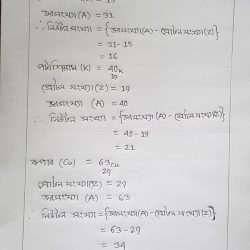 ভরসংখ্যা (A) = 31
∴ নিউট্রন সংখ্যা = {ভরসংখ্যা(A) - প্রোটন সংখ্যা(Z)}
= 31-15
= 16
পটাশিয়াম (K) = 40K
19
প্রোটন সংখ্যা (Z) = 19
ভরসংখ্যা (A) = 40
∴ নিউট্রন সংখ্যা = {ভরসংখ্যা(A) - প্রোটন সংখ্যা(Z)}
= 40-19
= 21
কপার (Cu) = 63Cu
29
প্রোটন সংখ্যা(Z) = 29
ভরসংখ্যা (A) = 63
∴ নিউট্রন সংখ্যা = {ভরসংখ্যা(A) - প্রোটন সংখ্যা(Z)}
= 63-29
= 34